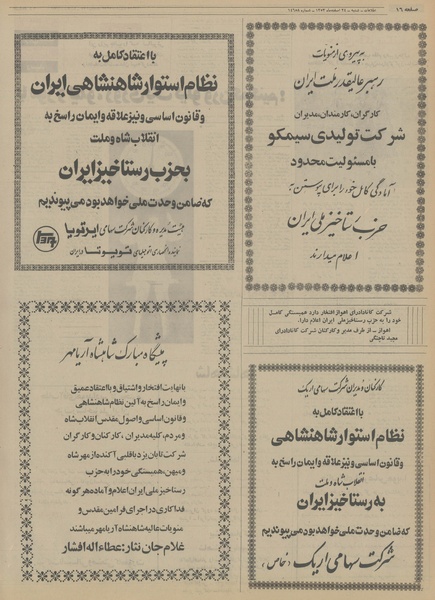 صفحه ۱۶
با اعتقاد کامل به
نظام استوار شاهنشاهی ایران
و قانون اساسی و نیز علاقه و ایمان راسخ به
انقلاب شاه و ملت
بحزب رستاخیز ایران
که ضامن وحدت ملی خواهد بود می پیوندیم
هیئت مدیره و کارکنان شرکت سهامی ایرتویا
نماینده انحصاری اتومبیلهای تویوتا در ایران
به پیروی از منویات
رهبر عالیقدر ملت ایران
کارگران، کارمندان، مدیران
شرکت تولیدی سیمکو
با مسئولیت محدود
آمادگی کامل خود را برای پیوستن به
حزب رستاخیز ملی ایران
اعلام میدارند
شرکت کانادادرای اهواز افتخار دارد همبستگی کامل
خود را به حزب رستاخیز ملی ایران اعلام دارد.
اهواز - از طرف مدیر و کارکنان شرکت کانادادرای
مجید تاجبنگی
پیشگاه مبارک شاهنشاه آریامهر
با نهایت افتخار و اشتیاق و با اعتقاد عمیق
و ایمان راسخ به آئین نظام شاهنشاهی
و قانون اساسی و اصول مقدس انقلاب شاه
و مردم، کلیه مدیران، کارکنان و کارگران
شرکت تابان یزد با قلبی آکنده از مهر شاه
و میهن، همبستگی خود را به حزب
رستاخیز ملی ایران اعلام و آماده هرگونه
فداکاری در اجرای فرامین مقدس و
منویات عالیه شاهنشاه آریامهر میباشند
غلام جان نثار: عطاءاله افشار
کارکنان و مدیران شرکت سهامی اریک
با اعتقاد کامل به
نظام استوار شاهنشاهی
و قانون اساسی و نیز علاقه و ایمان راسخ به
انقلاب شاه و ملت
به رستاخیز ایران
که ضامن وحدت ملی خواهد بود می پیوندیم
شرکت سهامی اریک (خاص)